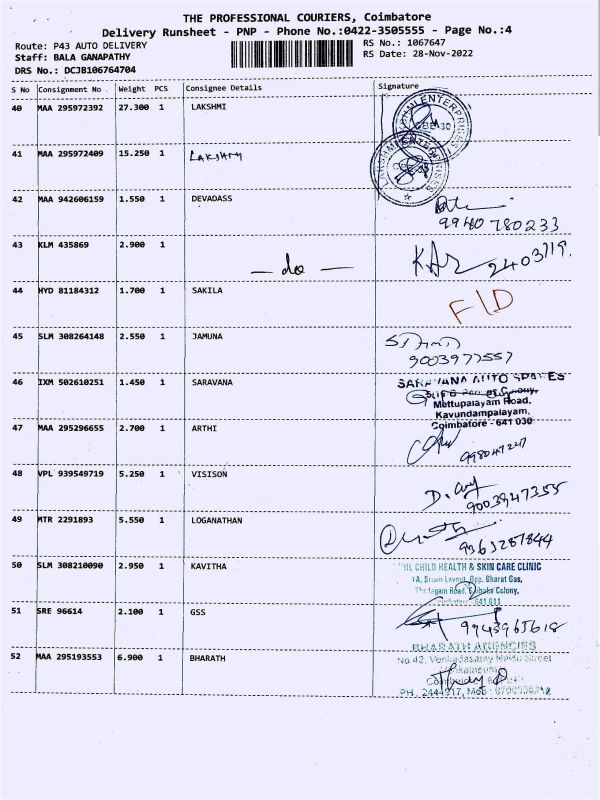 THE PROFESSIONAL COURIERS, Coimbatore
Delivery Runsheet - PNP - Phone No.:0422-3505555 - Page No.:4
Route: P43 AUTO DELIVERY RS No.: 1067647
Staff: BALA GANAPATHY RS Date: 28-Nov-2022
DRS No.: DCJB106764704
S No Consignment No Weight PCS Consignee Details Signature
40 MAA 295972392 27.300 1 LAKSHMI
41 MAA 295972409 15.250 1 LAKSHMI
42 MAA 942606159 1.550 1 DEVADASS
9940780233
43 KLM 435869 2.900 1 — do —
44 HYD 81184312 1.700 1 SAKILA F|D
45 SLM 308264148 2.550 1 JAMUNA
9003977557
46 IXM 502610251 1.450 1 SARAVANA SARAVANA AUTO SPARES
Mettupalayam Road,
Kavundampalayam,
Coimbatore - 641 030
47 MAA 295296655 2.700 1 ARTHI
48 VPL 939549719 5.250 1 VISISON
9003947355
49 MTR 2291893 5.550 1 LOGANATHAN
9363287844
50 SLM 308210090 2.950 1 KAVITHA CHILD HEALTH & SKIN CARE CLINIC
Opp. Bharat Gas,
Road, Colony,
641 011
51 SRE 96614 2.100 1 GSS
9943965618
BHARATH AGENCIES
52 MAA 295193553 6.900 1 BHARATH No.42, Street